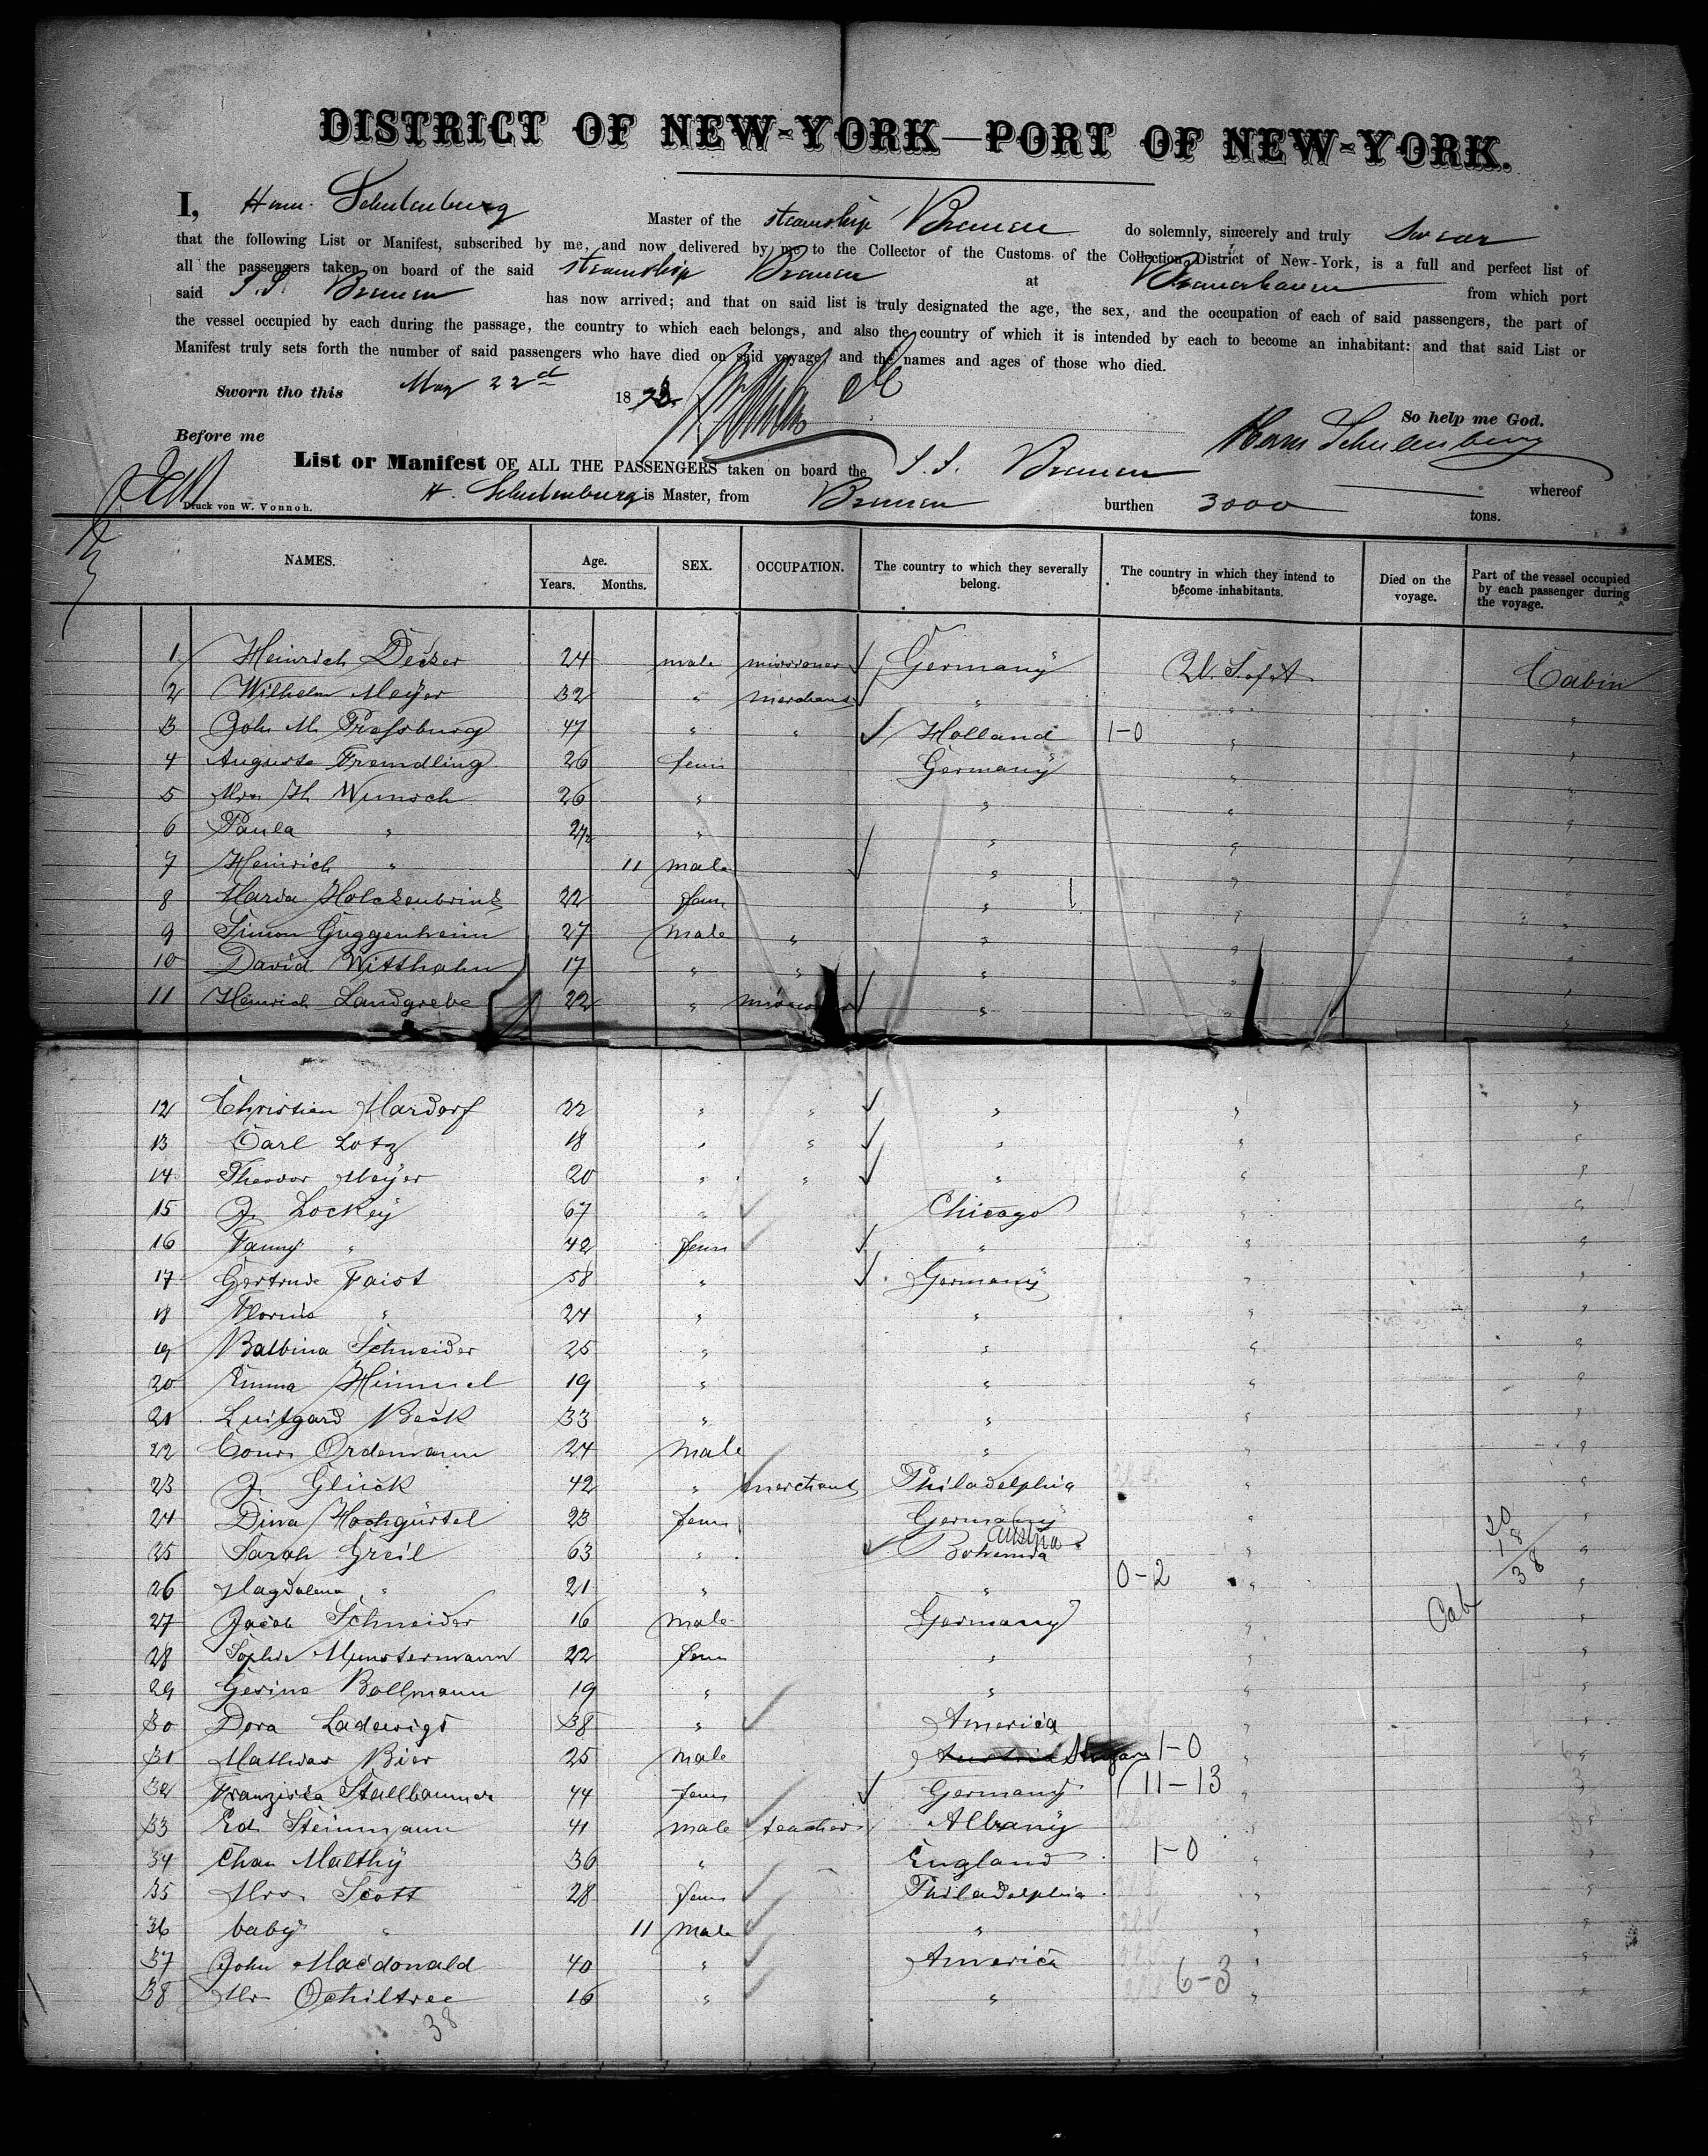 DISTRICT OF NEW-YORK—PORT OF NEW-YORK.
I, Herm. Schulenburg Master of the steamship Bremen do solemnly, sincerely and truly swear
that the following List or Manifest, subscribed by me, and now delivered by me to the Collector of the Customs of the Collection District of New-York, is a full and perfect list of
all the passengers taken on board of the said steamship Bremen at Bremerhaven from which port
said S.S. Bremen has now arrived; and that on said list is truly designated the age, the sex, and the occupation of each of said passengers, the part of
the vessel occupied by each during the passage, the country to which each belongs, and also the country of which it is intended by each to become an inhabitant: and that said List or
Manifest truly sets forth the number of said passengers who have died on said voyage, and the names and ages of those who died.
Sworn tho this May 22d 18
So help me God.
Before me Herm Schulenburg
List or Manifest OF ALL THE PASSENGERS taken on board the S.S. Bremen whereof
H. Schulenburg is Master, from Bremen burthen 3000 tons.
Druck von W. Vonnoh.
NAMES. Age. Years. Months. SEX. OCCUPATION. The country to which they severally belong. The country in which they intend to become inhabitants. Died on the voyage. Part of the vessel occupied by each passenger during the voyage.
1 Heinrich Decker 24 male missioner Germany U.S. of A Cabin
2 Wilhelm Meyer 32 " merchant " " "
3 John M. Pressburg 47 " " Holland 1-0 " "
4 Auguste Fremdling 26 fem Germany " "
5 Mrs H Wunsch 26 " " " "
6 Paula " " " " "
7 Heinrich " 11 male " " "
8 Maria Holckenbrink 22 fem " " "
9 Simon Guggenheim 27 male " " " "
10 David Witthahn 17 " " " " "
11 Heinrich Landgrebe 22 " missioner " " "
12 Christian Mardorf 22 " " " " "
13 Carl Lotz 18 " " " " "
14 Theodor Meyer 20 " " " " "
15 J. Lockey 67 " Chicago " "
16 Fanny " 42 fem " " "
17 Gertrude Faist 58 " Germany " "
18 " 24 " " " "
19 Balbina Schneider 25 " " " "
20 Emma Himmel 19 " " " "
21 Luitgard Beck 33 " " " "
22 Conr. Ordemann 24 male " " "
23 J. Glück 42 " merchant Philadelphia " "
24 Dina Hochgürtel 23 fem Germany " "
25 Sarah Greil 63 " Bohemia Austria " "
26 Magdalena " 21 " " 0-2 " "
27 Jacob Schneider 16 male Germany " "
28 Sophie Munstermann 22 fem " " "
29 Gesine Bollmann 19 " " " "
30 Dora Ladewigs 38 " America " "
31 Mathias Bier 25 male Austria Hungary 1-0 " "
32 Franziska Stallbaumer 44 fem Germany 11-13 " "
33 Ed. Steinmann 41 male teacher Albany " "
34 Chas Malthy 36 " England 1-0 " "
35 Mrs. Scott 28 fem Philadelphia " "
36 baby " 11 male " " "
37 John Macdonald 40 " America " "
38 Mr Ochiltree 16 " " 6-3 " "
38
20
18
38
Cab